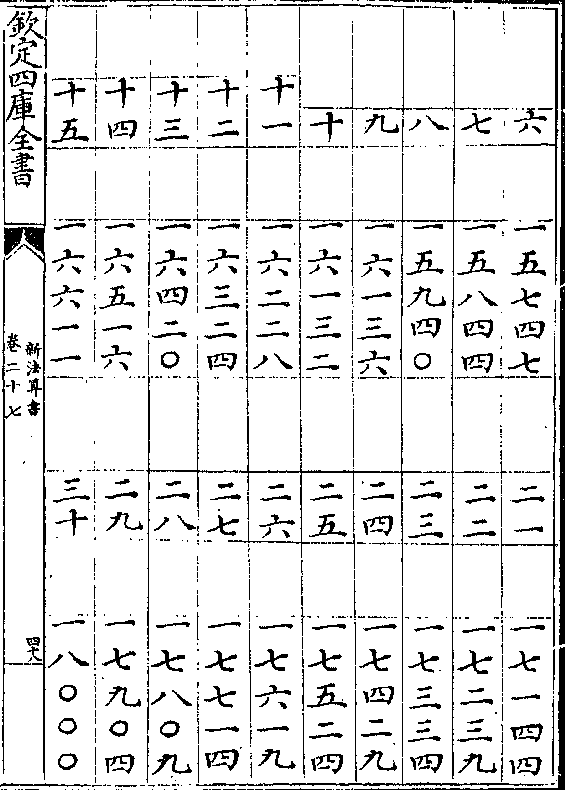 六 一五七四七 二一 一七一四四
七 一五八四四 二二 一七二三九
八 一五九四〇 二三 一七三三四
九 一六一三六 二四 一七四二九
十 一六一三二 二五 一七五二四
十一 一六二二八 二六 一七六一九
十二 一六三二四 二七 一七七一四
十三 一六四二〇 二八 一七八〇九
十四 一六五一六 二九 一七九〇四
十五 一六六一一 三十 一八〇〇〇
欽定四庫全書
新法算書
卷二十七
四十八